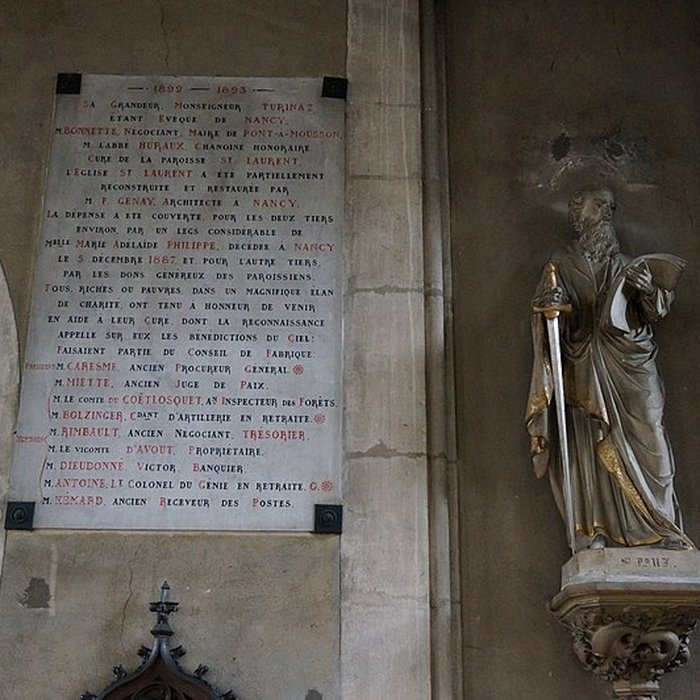 1892 — 1893
SA GRANDEUR, MONSEIGNEUR TURINAZ
ETANT EVEQUE DE NANCY,
M. BONNETTE, NEGOCIANT, MAIRE DE PONT-A-MOUSSON,
M. L'ABBÉ HURAUX, CHANOINE HONORAIRE
CURE DE LA PAROISSE ST LAURENT,
L'EGLISE ST LAURENT A ETE PARTIELLEMENT
RECONSTRUITE ET RESTAUREE PAR
M. F. GENAY, ARCHITECTE A NANCY.
LA DÉPENSE A ETE COUVERTE, POUR LES DEUX TIERS
ENVIRON, PAR UN LEGS CONSIDERABLE DE
MELLE MARIE ADELAÏDE PHILIPPE, DECEDEE A NANCY
LE 5 DECEMBRE 1887, ET, POUR L'AUTRE TIERS,
PAR LES DONS GENEREUX DES PAROISSIENS.
TOUS, RICHES OU PAUVRES, DANS UN MAGNIFIQUE ELAN
DE CHARITE, ONT TENU A HONNEUR DE VENIR
EN AIDE A LEUR CURE, DONT LA RECONNAISSANCE
APPELLE SUR EUX LES BENEDICTIONS DU CIEL!
FAISAIENT PARTIE DU CONSEIL DE FABRIQUE:
PRESIDENT M. CARESME, ANCIEN PROCUREUR GENERAL.
M. MIETTE, ANCIEN JUGE DE PAIX.
M. LE COMTE DU COËTLOSQUET, AN INSPECTEUR DES FORÊTS.
M. BOLZINGER, CDANT D'ARTILLERIE EN RETRAITE.
M. RIMBAULT, ANCIEN NEGOCIANT, TRESORIER,
MEMBRES
M. LE VICOMTE D'AVOUT, PROPRIETAIRE,
M. DIEUDONNÉ VICTOR, BANQUIER.
M. ANTOINE, LT COLONEL DU GENIE EN RETRAITE, G.
M. HEMARD, ANCIEN RECEVEUR DES POSTES.
St PAUL.